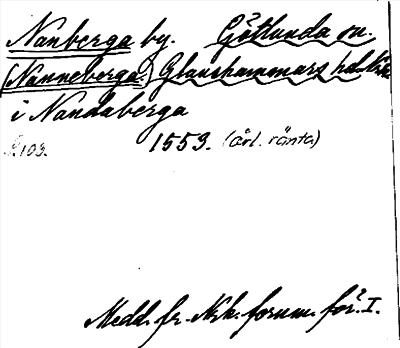 Nanberga by. Götlunda sn.
(Nanneberga.) Glanshammars hd.
i Nandaberga
1553. (årl. ränta)
Medd. fr. Nrk. fornm. för. I.